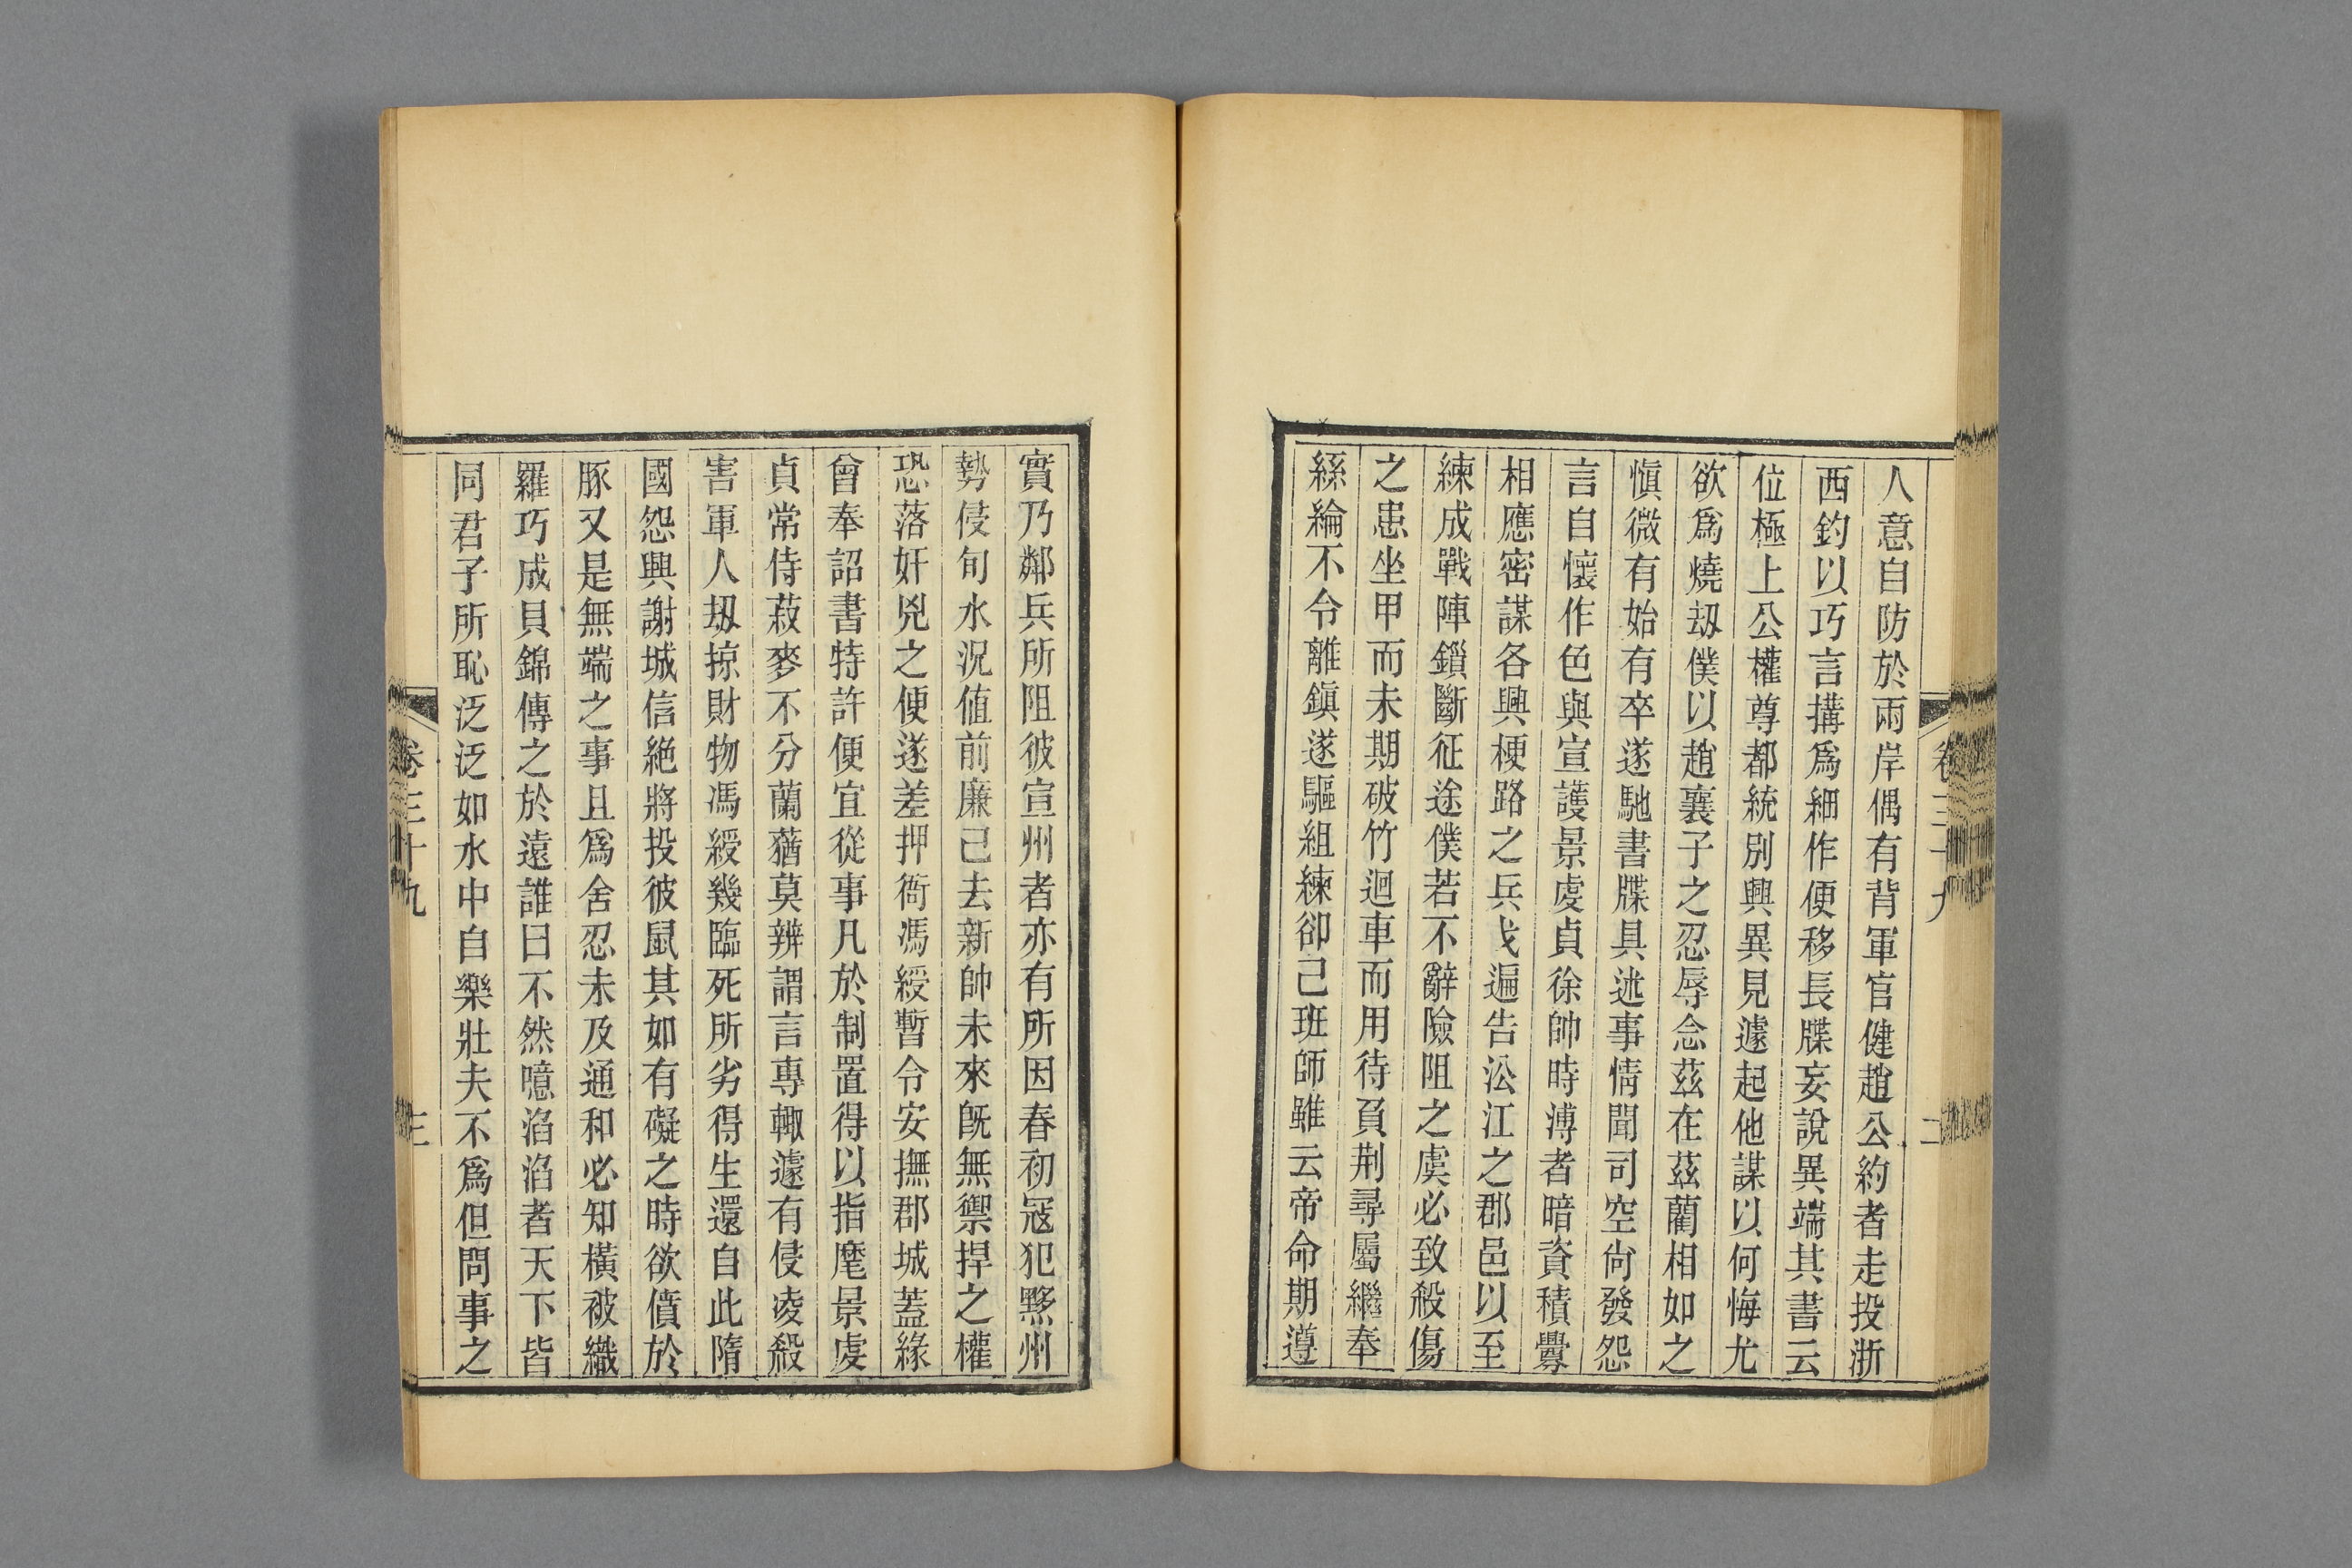 人意自防於兩岸偶有背軍官健趙公約者走投浙
西釣以巧言搆爲細作便移長牒妄說異端其書云
位極上公權尊都統別興異見遽起他謀以何悔尤
欲爲燒刧僕以趙襄子之忍辱念茲在茲藺相如之
愼微有始有卒遂馳書牒具述事情聞司空尙發怨
言自懷作色與宣護景虔貞徐帥時溥者暗資積釁
相應密謀各興梗路之兵戈遍告㳂江之郡邑以至
練成戰陣鎻斷征途僕若不辭險阻之虞必致殺傷
之患坐甲而未期破竹迴車而用待負荆尋屬繼奉
絲綸不令離鎭遂驅組練卻己班師雖云帝命期遵
卷三十九
二
實乃鄰兵所阻彼宣州者亦有所因春初冦犯黟州
勢侵旬水況值前廉己去新帥未來旣無禦捍之權
恐落奸兇之便遂差押衙馮綬暫令安撫郡城蓋緣
曾奉詔書特許便宜從事凡於制置得以指麾景虔
貞常侍菽麥不分蘭蕕莫辨謂言專輙遽有侵凌殺
害軍人刼掠財物馮綬幾臨死所劣得生還自此隋
國怨興謝城信絶將投彼鼠其如有礙之時欲償於
豚又是無端之事且爲舍忍未及通和必知橫被織
羅巧成貝錦傳之於遠誰曰不然噫滔滔者天下皆
同君子所恥泛泛如水中自樂壯夫不爲但問事之
卷三十九
三